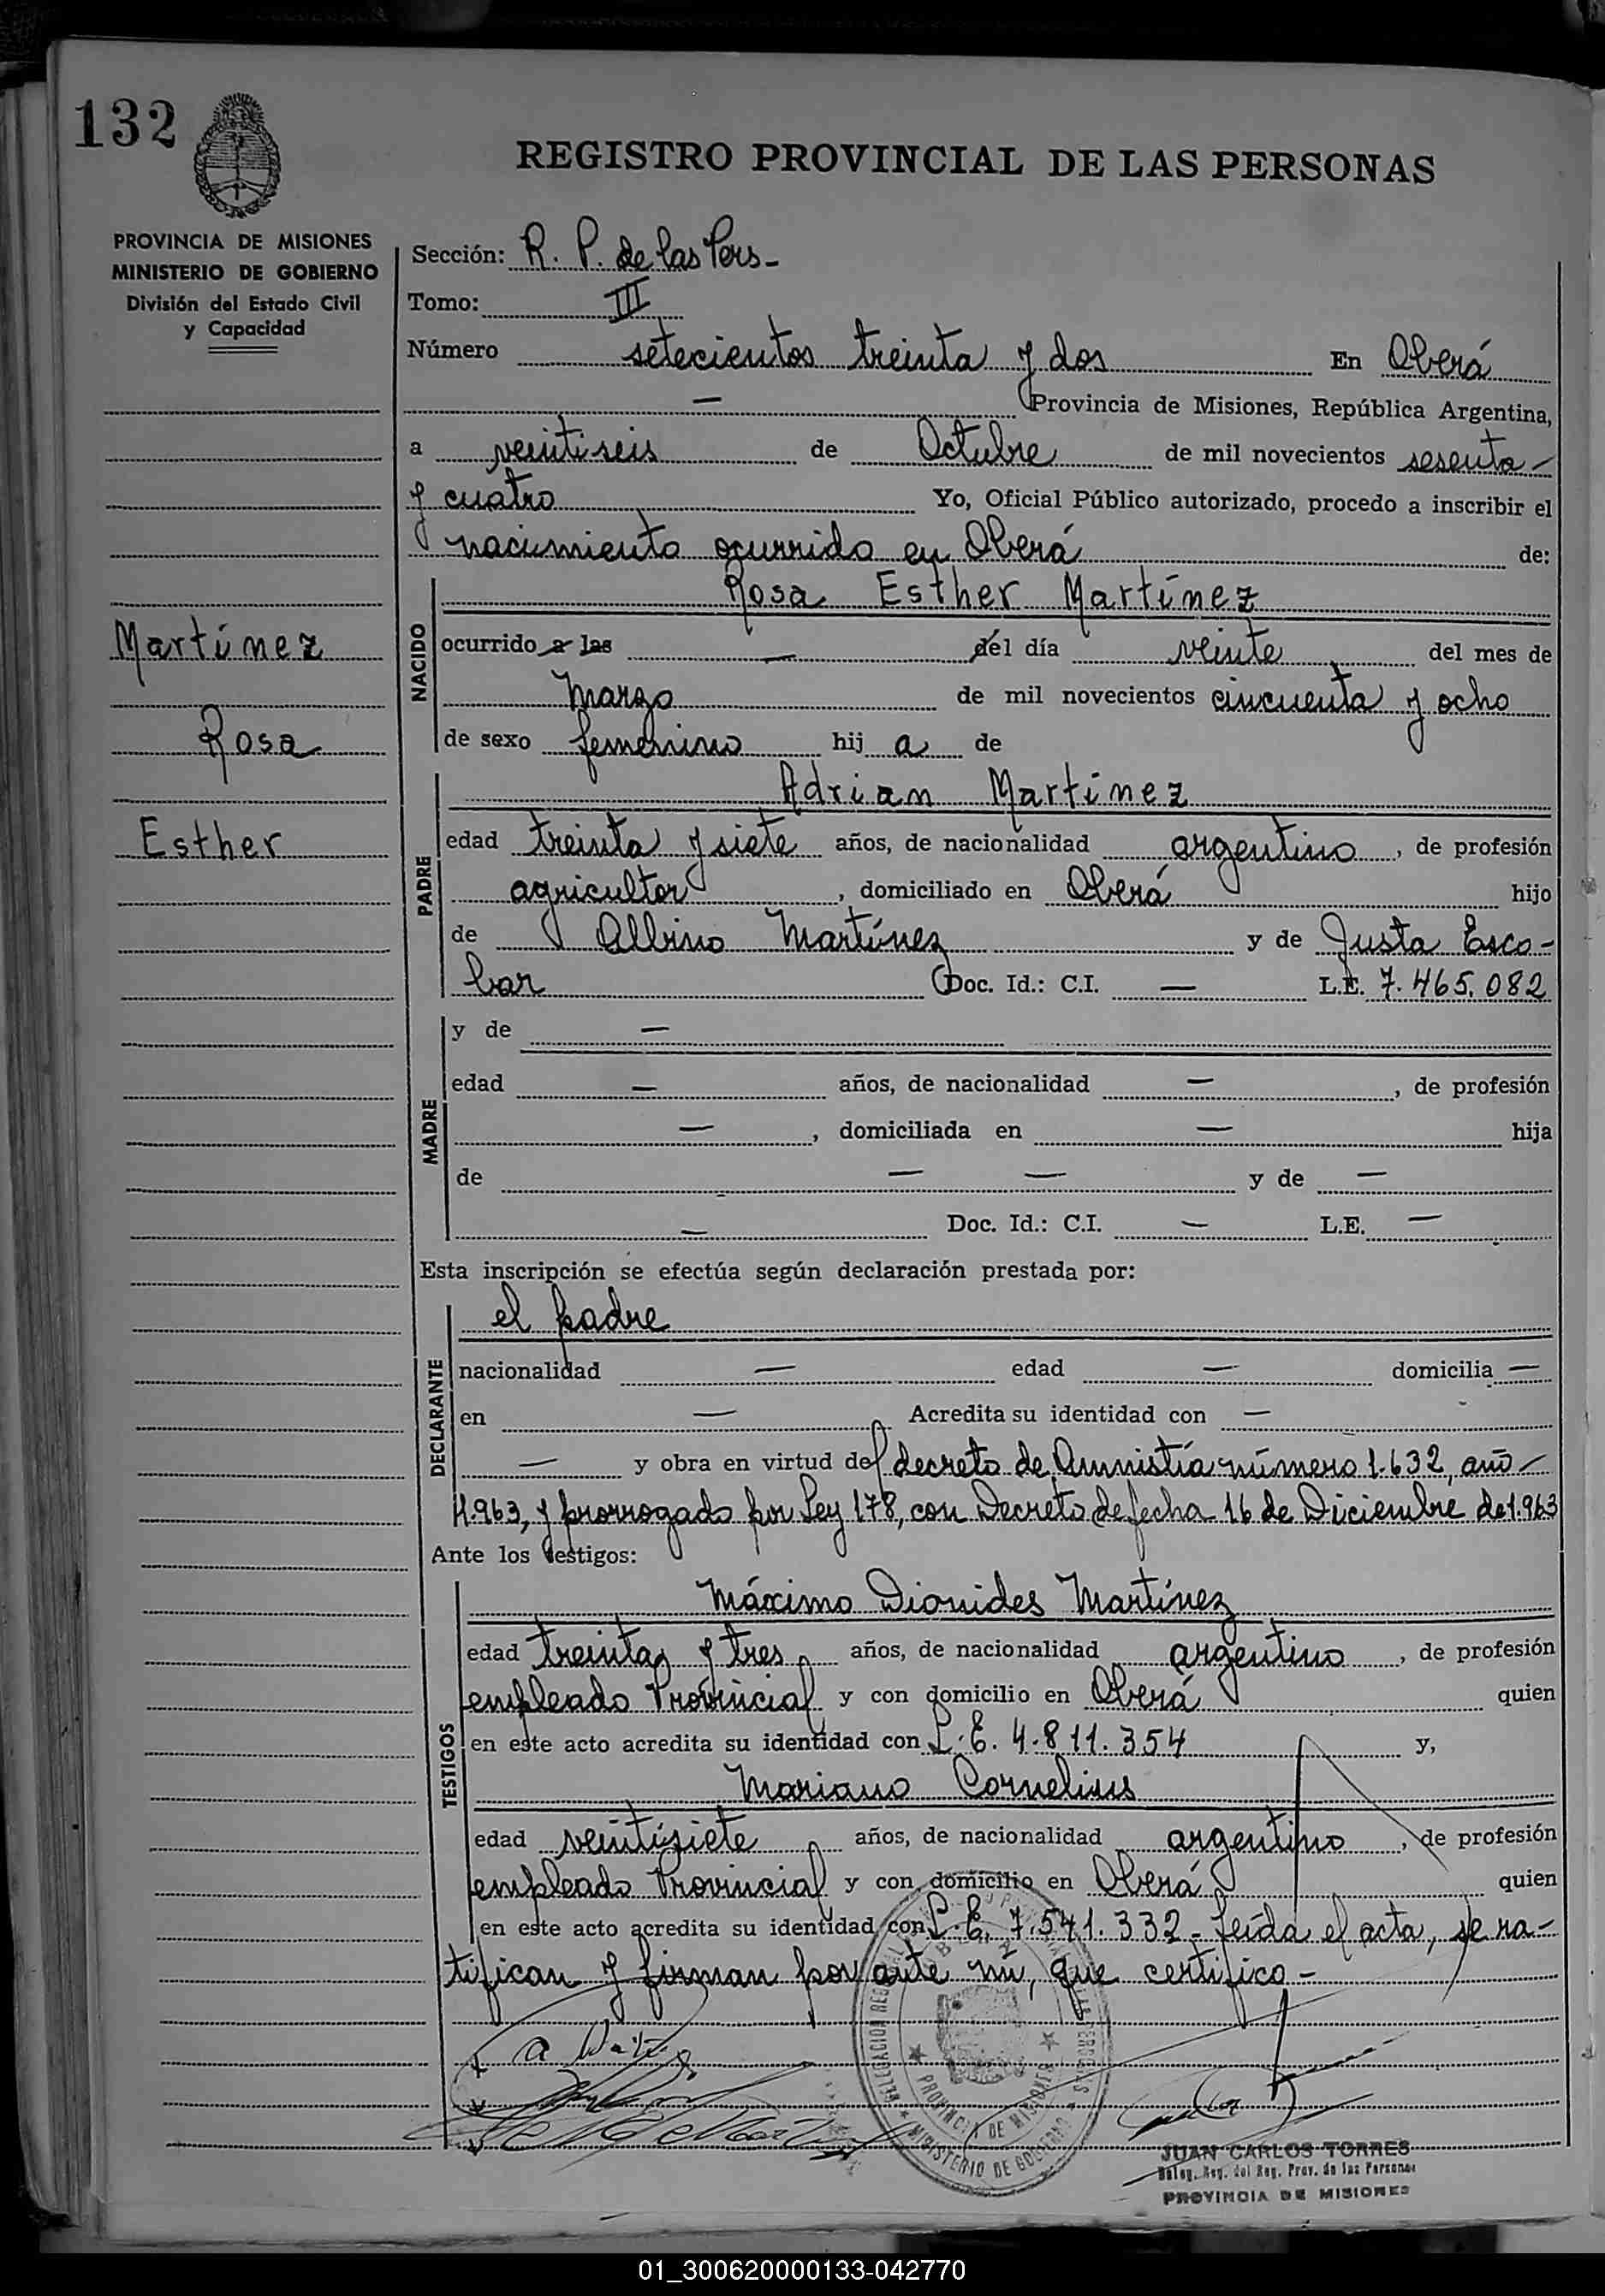 132
REGISTRO PROVINCIAL DE LAS PERSONAS
PROVINCIA DE MISIONES
MINISTERIO DE GOBIERNO
División del Estado Civil
y Capacidad
Martínez
Rosa
Esther
Sección: R. P. de las Pers-
Tomo: III
Número setecientos treinta y dos En Oberá
— Provincia de Misiones, República Argentina,
a veintiseis de Octubre de mil novecientos sesenta-
y cuatro Yo, Oficial Público autorizado, procedo a inscribir el
nacimiento ocurrido en Oberá de:
NACIDO
Rosa Esther Martínez
ocurrido a las — del día veinte del mes de
Marzo de mil novecientos cincuenta y ocho
de sexo femenino hij a de
PADRE
Adrian Martínez
edad treinta y siete años, de nacionalidad argentino, de profesión
agricultor, domiciliado en Oberá hijo
de Albino Martínez y de Justa Esco-
bar Doc. Id.: C.I. — L.E. 7.465.082
MADRE
y de —
edad — años, de nacionalidad —, de profesión
—, domiciliada en — hija
de — — y de —
— Doc. Id.: C.I. — L.E. —
Esta inscripción se efectúa según declaración prestada por:
DECLARANTE
el padre
nacionalidad — edad — domicilia —
en — Acredita su identidad con —
— y obra en virtud del decreto de Amnistía número 1.632, año-
1.963, y prorrogado por Ley 178, con Decreto de fecha 16 de Diciembre de 1.963
Ante los testigos:
TESTIGOS
Máximo Dionides Martínez
edad treinta y tres años, de nacionalidad argentino, de profesión
empleado Provincial y con domicilio en Oberá quien
en este acto acredita su identidad con L.E. 4.811.354 y,
Mariano Cornelius
edad veintisiete años, de nacionalidad argentino, de profesión
empleado Provincial y con domicilio en Oberá quien
en este acto acredita su identidad con L.E. 7.541.332- Leída el acta, se ra-
tifican y firman por ante mi, que certifico-
PROVINCIA DE MISIONES
MINISTERIO DE GOBIERNO
JUAN CARLOS TORRES
Deleg. Reg. del Reg. Prov. de las Personas
PROVINCIA DE MISIONES
01_300620000133-042770